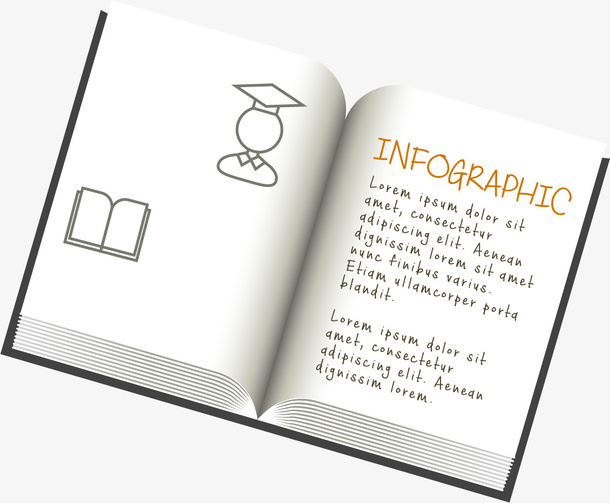 INFOGRAPHIC
Lorem ipsum dolor sit
amet, consectetur
adipiscing elit. Aenean
dignissim lorem sit amet
nunc finibus varius.
Etiam ullamcorper porta
blandit.
Lorem ipsum dolor sit
amet, consectetur
adipiscing elit. Aenean
dignissim lorem.